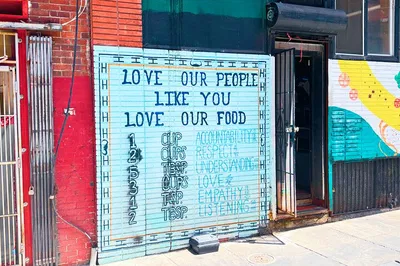 LOVE OUR PEOPLE
LIKE YOU
LOVE OUR FOOD
1 CUP ACCOUNTABILITY
2 CUPS RESPECT
5 TBSP UNDERSTANDING
3 CUPS LOVE
1 TSP EMPATHY
2 TBSP. LISTENING